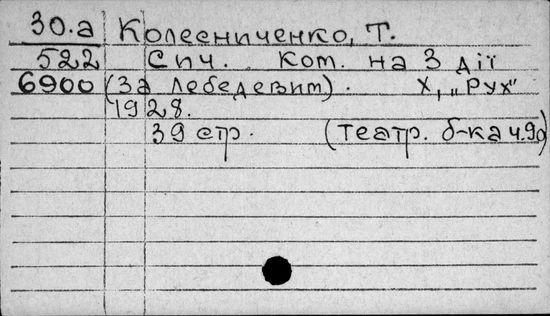 30.а Колесниченко, Т.
522 Сич. Ком. на 3 дії
6900 (За Лебедевим). Х, „Рух"
1928.
39 стр. (Театр. б-ка ч.90)